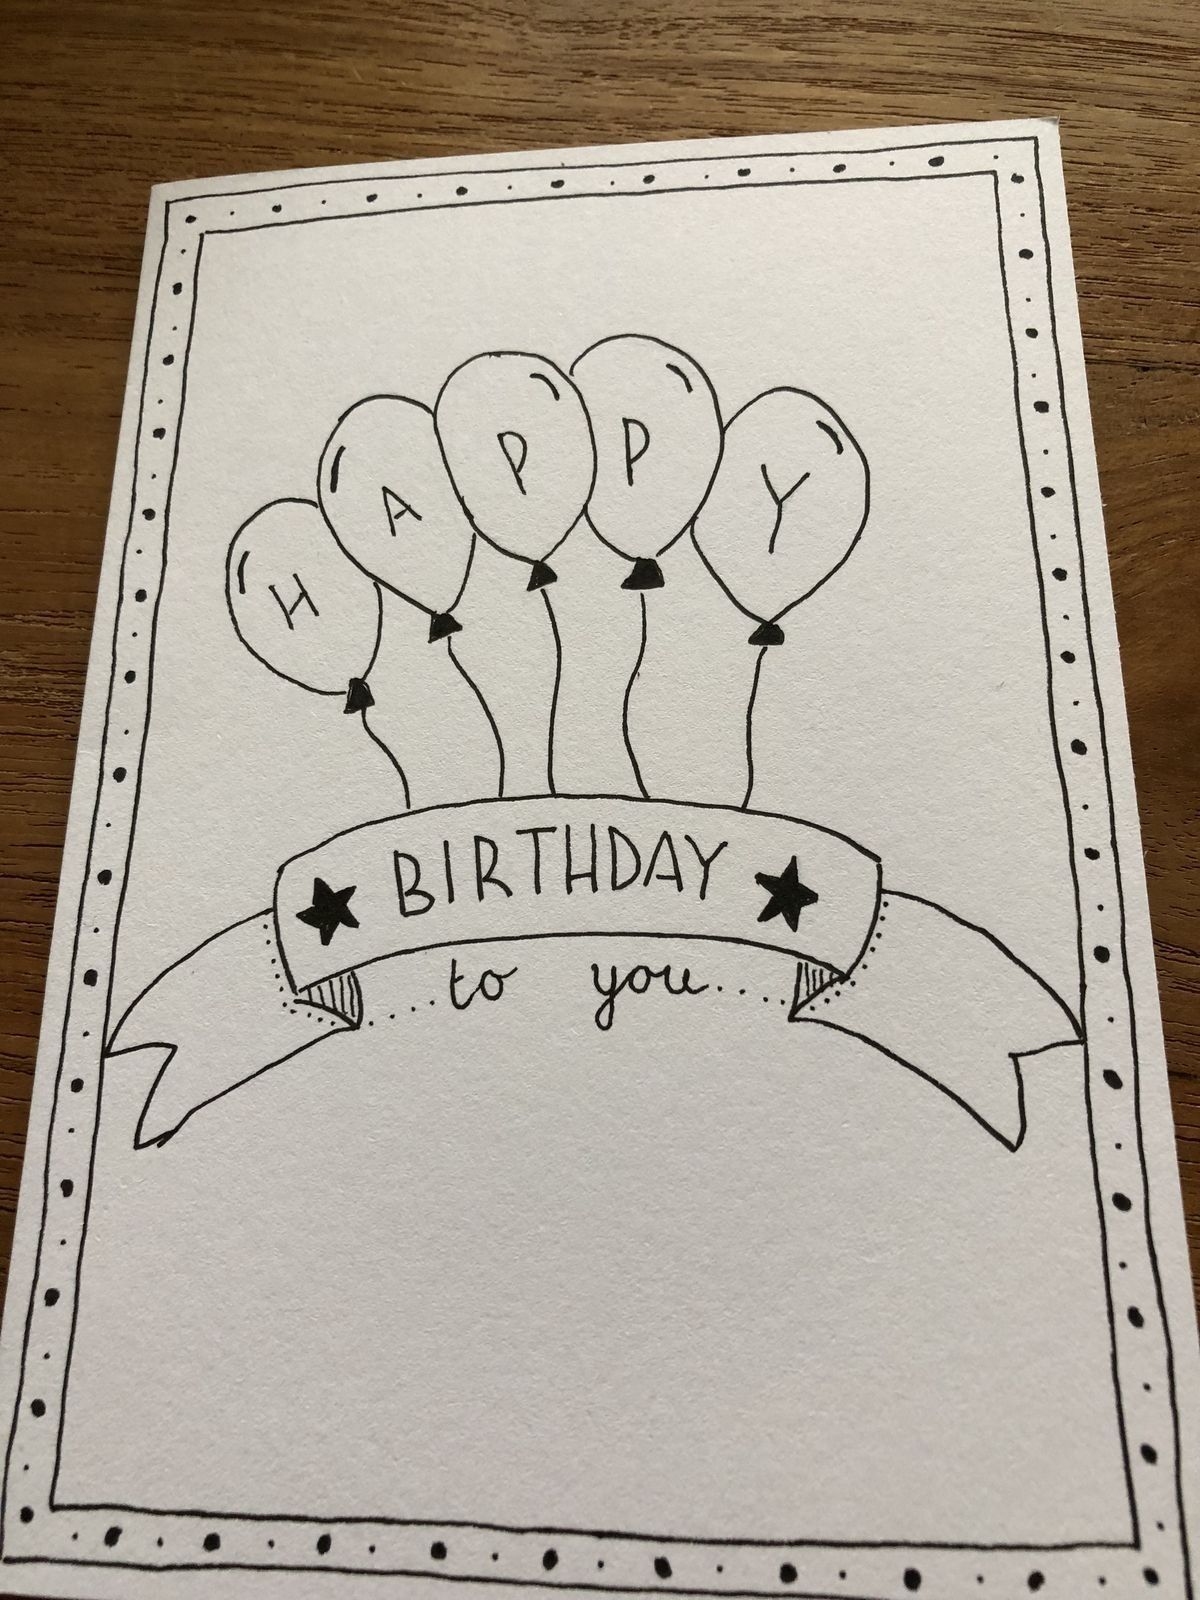 HAPPY
BIRTHDAY
to you